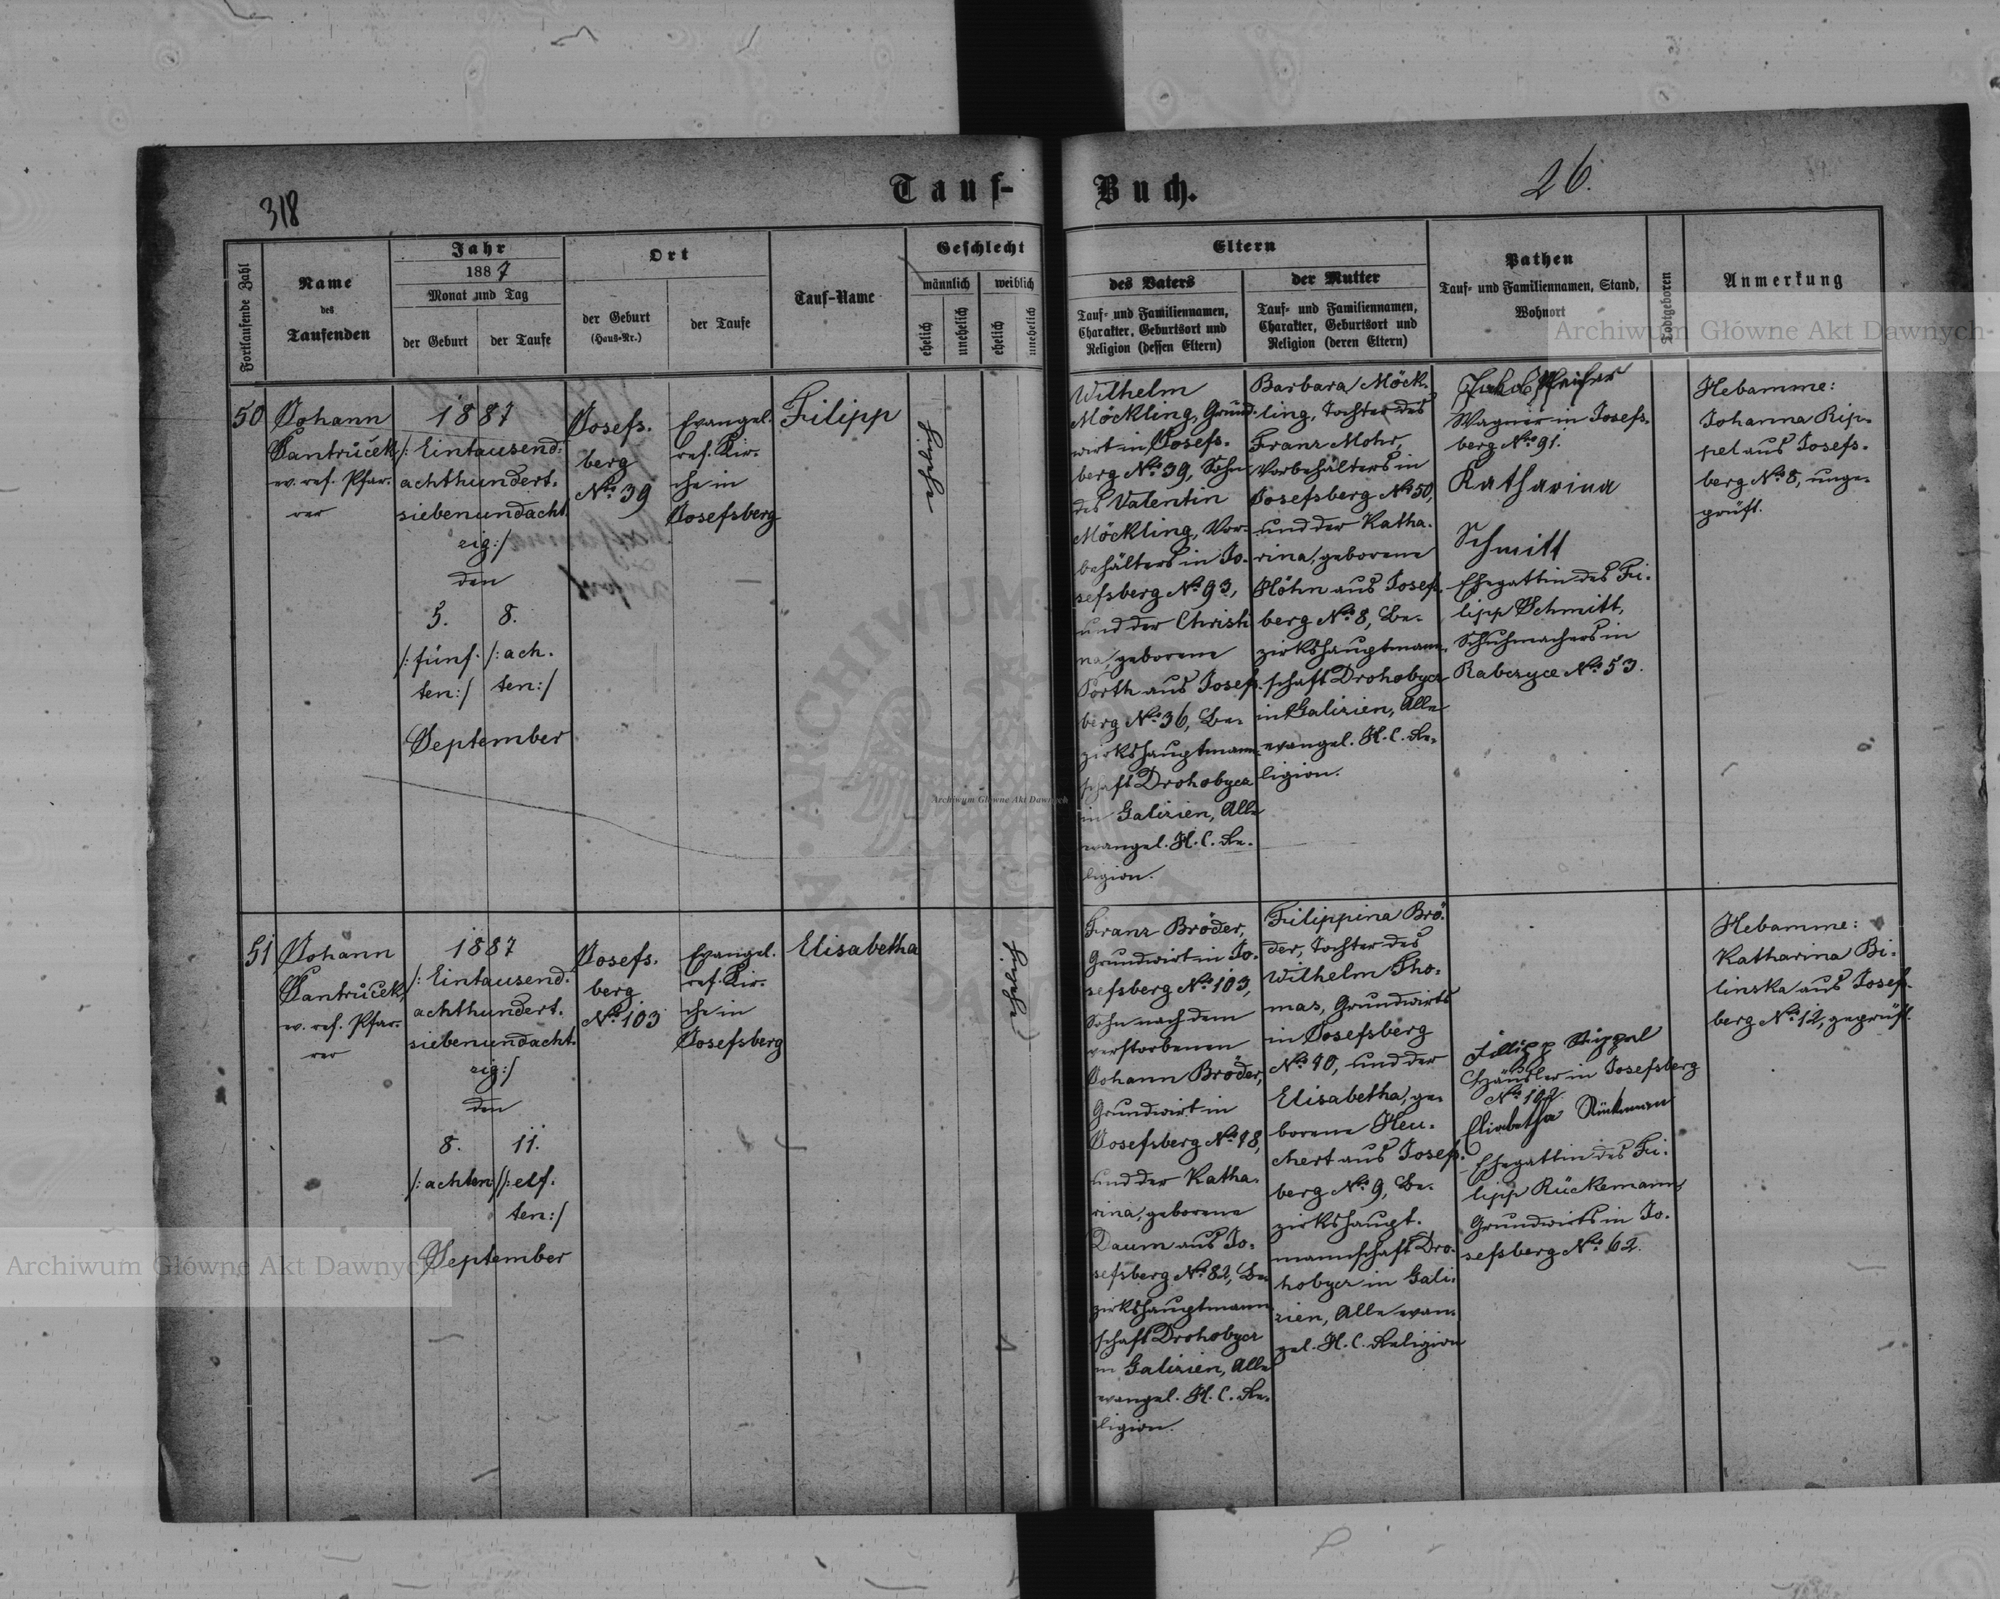 318
Tauf-
Buch.
26.
Fortlaufende Zahl
Name
des
Taufenden
Jahr
1887
Monat und Tag
der Geburt
der Taufe
Ort
der Geburt
(Haus-Nr.)
der Taufe
Tauf-Name
Geschlecht
männlich
weiblich
ehelich
unehelich
ehelich
unehelich
Eltern
des Vaters
Tauf- und Familiennamen,
Charakter, Geburtsort und
Religion (dessen Eltern)
der Mutter
Tauf- und Familiennamen,
Charakter, Geburtsort und
Religion (deren Eltern)
Pathen
Tauf- und Familiennamen, Stand,
Wohnort
Todtgeboren
Anmerkung
50
Johann
Jantrůček,
ev. ref. Pfar-
rer
1887
/: Eintausend-
achthundert-
siebenundacht-
zig :/
den
5.
8.
/: fünf-
ten :/
/: ach-
ten :/
September
Josefs-
berg
No. 39
Evangel.
ref. Kir-
che in
Josefsberg
Filipp
Wilhelm
Möckling, Grund-
wirt in Josefs-
berg No. 39, Sohn
des Valentin
Möckling, Vor-
behälters in Jo-
sefsberg No. 93,
und der Christi-
na, geborene
aus Josefs-
berg No. 36, Be-
zirkshauptmann-
schaft Drohobycz
in Galizien, Alle
evangel. H. C. Re-
ligion.
Barbara Möck-
ling, Tochter des
Franz Mohr,
Vorbehälters in
Josefsberg No. 50,
und der Katha-
rina, geborene
Höhn aus Josefs-
berg No. 8, Be-
zirkshauptmann-
schaft Drohobycz
in Galizien, Alle
evangel. H. C. Re-
ligion.
Jakob Pfeifer
Wagner in Josefs-
berg No. 91.
Katharina
Schmitt
Ehegattin des Fi-
lipp Schmitt,
Schuhmachers in
Rabczyce No. 53.
Hebamme:
Johanna Rip-
pel aus Josefs-
berg No. 8, unge-
prüft.
51
Johann
Jantrůček,
ev. ref. Pfar-
rer
1887
/: Eintausend-
achthundert-
siebenundacht-
zig :/
den
8.
11.
/: achten :/
/: elf-
ten :/
September
Josefs-
berg
No. 103
Evangel.
ref. Kir-
che in
Josefsberg
Elisabetha
Franz Bröder,
Grundwirt in Jo-
sefsberg No. 103,
Sohn nach dem
verstorbenen
Johann Bröder,
Grundwirt in
Josefsberg No. 18,
und der Katha-
rina, geborene
Daum aus Jo-
sefsberg No. 82, Be-
zirkshauptmann-
schaft Drohobycz
in Galizien, Alle
evangel. H. C. Re-
ligion.
Filippina Brö-
der, Tochter des
Wilhelm Tho-
mas, Grundwirts
in Josefsberg
No. 40, und der
Elisabetha, ge-
borene Heu-
chert aus Josefs-
berg No. 9, Be-
zirkshaupt-
mannschaft Dro-
hobycz in Gali-
zien, Alle evan-
gel. H. C. Religion
Filipp Rippel
Häusler in Josefsberg
No. 102.
Elisabetha Rückemann
Ehegattin des Fi-
lipp Rückemann,
Grundwirts in Jo-
sefsberg No. 62.
Hebamme:
Katharina Bi-
linska aus Josefs-
berg No. 12, geprüft.
Archiwum Główne Akt Dawnych
Archiwum Główne Akt Dawnych
Archiwum Główne Akt Dawnych